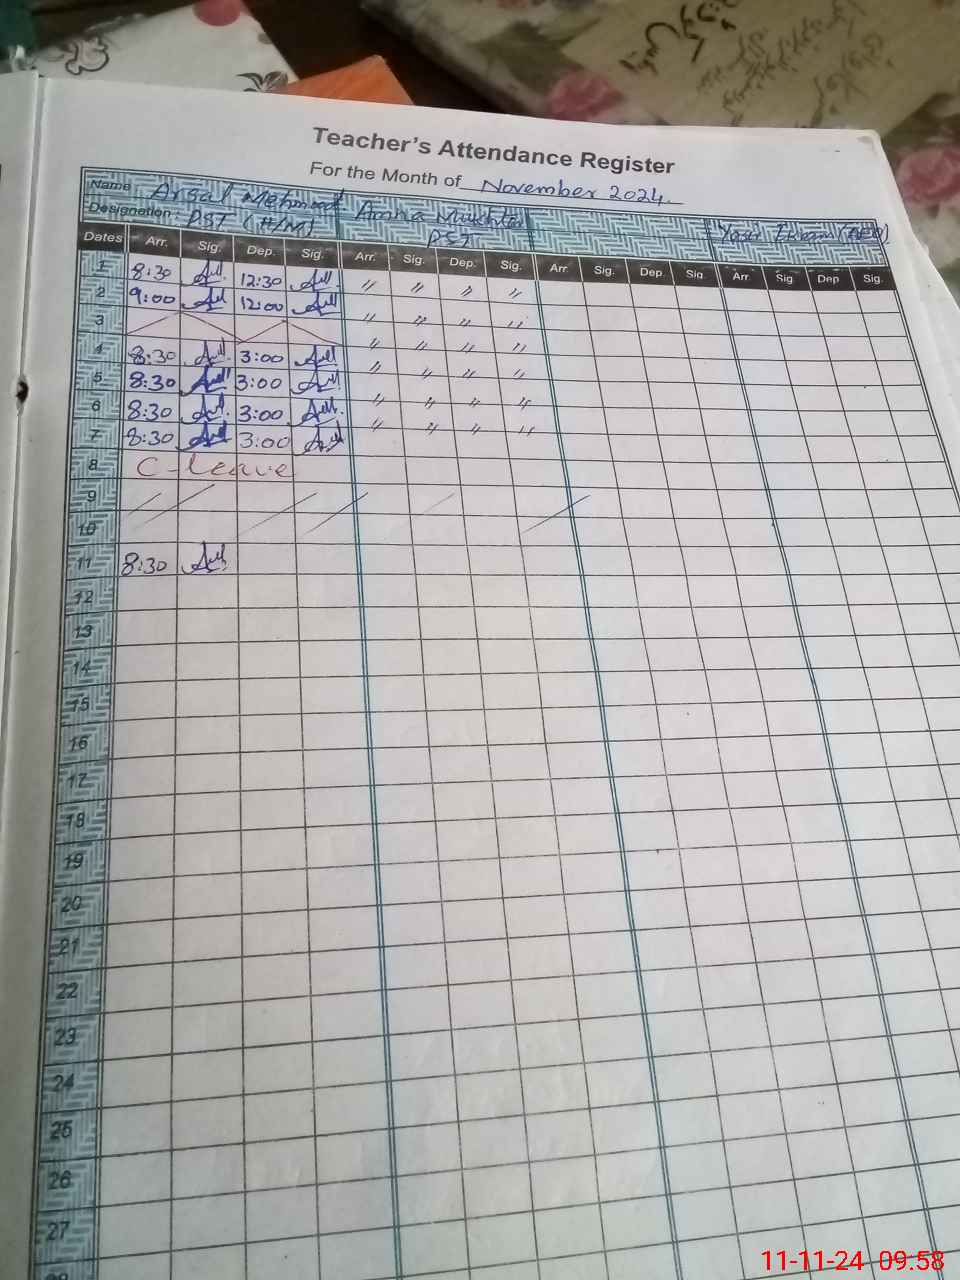 Teacher's Attendance Register
For the Month of November 2024.
Name Arsal Mehmood Amna Mushtaq Yasir Ikram (AEO)
Designation: PST (H/M) PST
Dates Arr. Sig. Dep. Sig. Arr. Sig. Dep. Sig. Arr. Sig. Dep. Sig. Arr. Sig. Dep. Sig.
1 8:30 12:30 " " " "
2 9:00 12:00 " " " "
3
4 8:30 3:00 " " " "
5 8:30 3:00 " " " "
6 8:30 3:00 " " " "
7 8:30 3:00 " " " "
8 C-leave
9
10
11 8:30
12
13
14
15
16
17
18
19
20
21
22
23
24
25
26
27
28
11-11-24 09:58